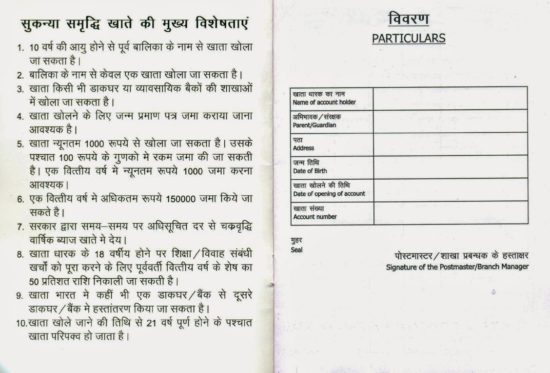 सुकन्या समृद्धि खाते की मुख्य विशेषताएं
1. 10 वर्ष की आयु होने से पूर्व बालिका के नाम से खाता खोला
जा सकता है।
2. बालिका के नाम से केवल एक खाता खोला जा सकता है।
3. खाता किसी भी डाकघर या व्यावसायिक बैकों की शाखाओं
में खोला जा सकता है।
4. खाता खोलने के लिए जन्म प्रमाण पत्र जमा कराया जाना
आवश्यक है।
5. खाता न्यूनतम 1000 रूपये से खोला जा सकता है। उसके
पश्चात 100 रूपये के गुणको मे रकम जमा की जा सकती
है। एक वित्तीय वर्ष मे न्यूनतम रूपये 1000 जमा करना
आवश्यक।
6. एक वित्तीय वर्ष मे अधिकतम रूपये 150000 जमा किये जा
सकते है।
7. सरकार द्वारा समय-समय पर अधिसूचित दर से चक्रवृद्धि
वार्षिक ब्याज खाते मे देय।
8. खाता धारक के 18 वर्षीय होने पर शिक्षा/विवाह संबंधी
खर्चो को पूरा करने के लिए पूर्ववर्ती वित्तीय वर्ष के शेष का
50 प्रतिशत राशि निकाली जा सकती है।
9. खाता भारत मे कहीं भी एक डाकघर/बैंक से दूसरे
डाकघर/बैंक मे हस्तांतरण किया जा सकता है।
10. खाता खोले जाने की तिथि से 21 वर्ष पूर्ण होने के पश्चात
खाता परिपक्व हो जाता है।
विवरण
PARTICULARS
खाता धारक का नाम
Name of account holder
अभिभावक/संरक्षक
Parent/Guardian
पता
Address
जन्म तिथि
Date of Birth
खाता खोलने की तिथि
Date of opening of account
खाता संख्या
Account number
मुहर
Seal
पोस्टमास्टर/शाखा प्रबन्धक के हस्ताक्षर
Signature of the Postmaster/Branch Manager